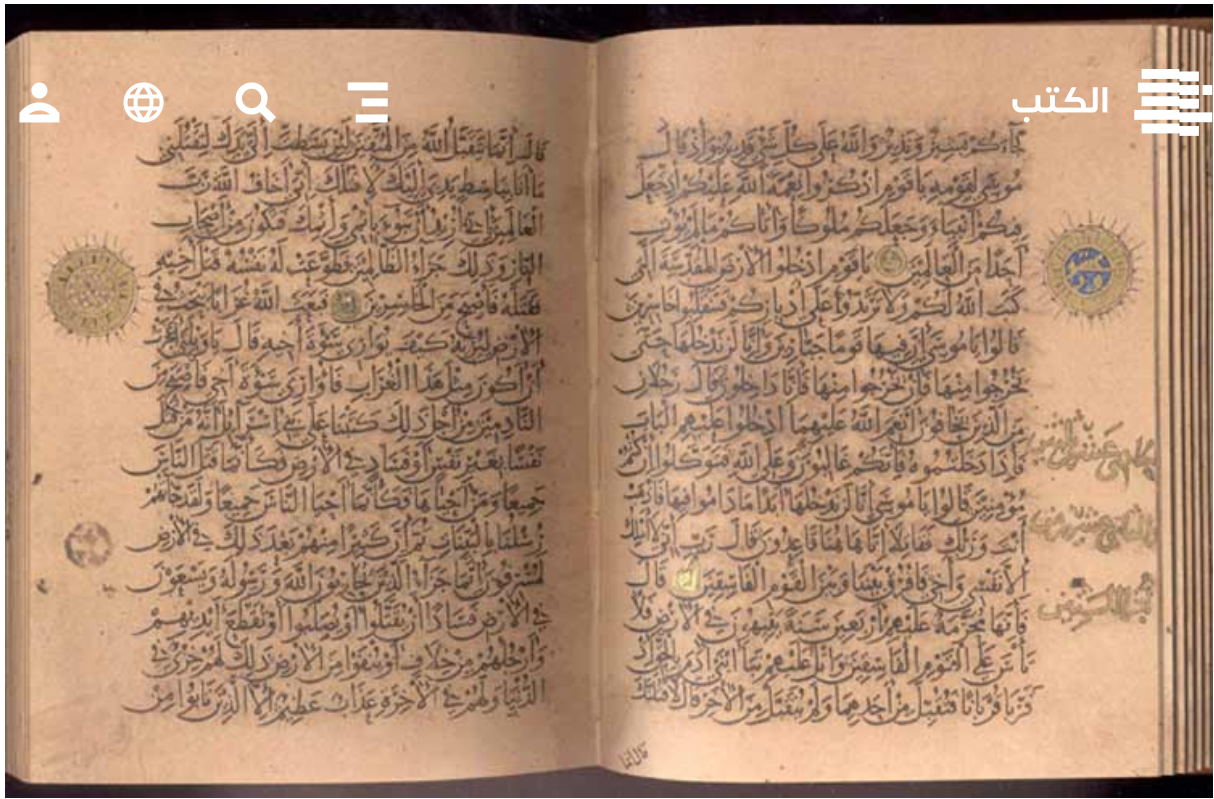 الكتب
جاءكم بشير ونذير والله على كل شيء قدير وإذ قال
موسى لقومه يا قوم اذكروا نعمة الله عليكم إذ جعل
فيكم أنبياء وجعلكم ملوكا وآتاكم ما لم يؤت
أحدا من العالمين يا قوم ادخلوا الأرض المقدسة التي
كتب الله لكم ولا ترتدوا على أدباركم فتنقلبوا خاسرين
قالوا يا موسى إن فيها قوما جبارين وإنا لن ندخلها حتى
يخرجوا منها فإن يخرجوا منها فإنا داخلون قال رجلان
من الذين يخافون أنعم الله عليهما ادخلوا عليهم الباب
فإذا دخلتموه فإنكم غالبون وعلى الله فتوكلوا إن كنتم
مؤمنين قالوا يا موسى إنا لن ندخلها أبدا ما داموا فيها فاذهب
أنت وربك فقاتلا إنا هاهنا قاعدون قال رب إني لا أملك
إلا نفسي وأخي فافرق بيننا وبين القوم الفاسقين قال
فإنها محرمة عليهم أربعين سنة يتيهون في الأرض فلا
تأس على القوم الفاسقين واتل عليهم نبأ ابني آدم بالحق إذ
قربا قربانا فتقبل من أحدهما ولم يتقبل من الآخر قال لأقتلنك
قال إنما
قال إنما يتقبل الله من المتقين لئن بسطت إلي يدك لتقتلني
ما أنا بباسط يدي إليك لأقتلك إني أخاف الله رب
العالمين إني أريد أن تبوء بإثمي وإثمك فتكون من أصحاب
النار وذلك جزاء الظالمين فطوعت له نفسه قتل أخيه
فقتله فأصبح من الخاسرين فبعث الله غرابا يبحث في
الأرض ليريه كيف يواري سوءة أخيه قال يا ويلتى أعجزت
أن أكون مثل هذا الغراب فأواري سوءة أخي فأصبح من
النادمين من أجل ذلك كتبنا على بني إسرائيل أنه من قتل
نفسا بغير نفس أو فساد في الأرض فكأنما قتل الناس
جميعا ومن أحياها فكأنما أحيا الناس جميعا ولقد جاءتهم
رسلنا بالبينات ثم إن كثيرا منهم بعد ذلك في الأرض
لمسرفون إنما جزاء الذين يحاربون الله ورسوله ويسعون
في الأرض فسادا أن يقتلوا أو يصلبوا أو تقطع أيديهم
وأرجلهم من خلاف أو ينفوا من الأرض ذلك لهم خزي في
الدنيا ولهم في الآخرة عذاب عظيم إلا الذين تابوا من